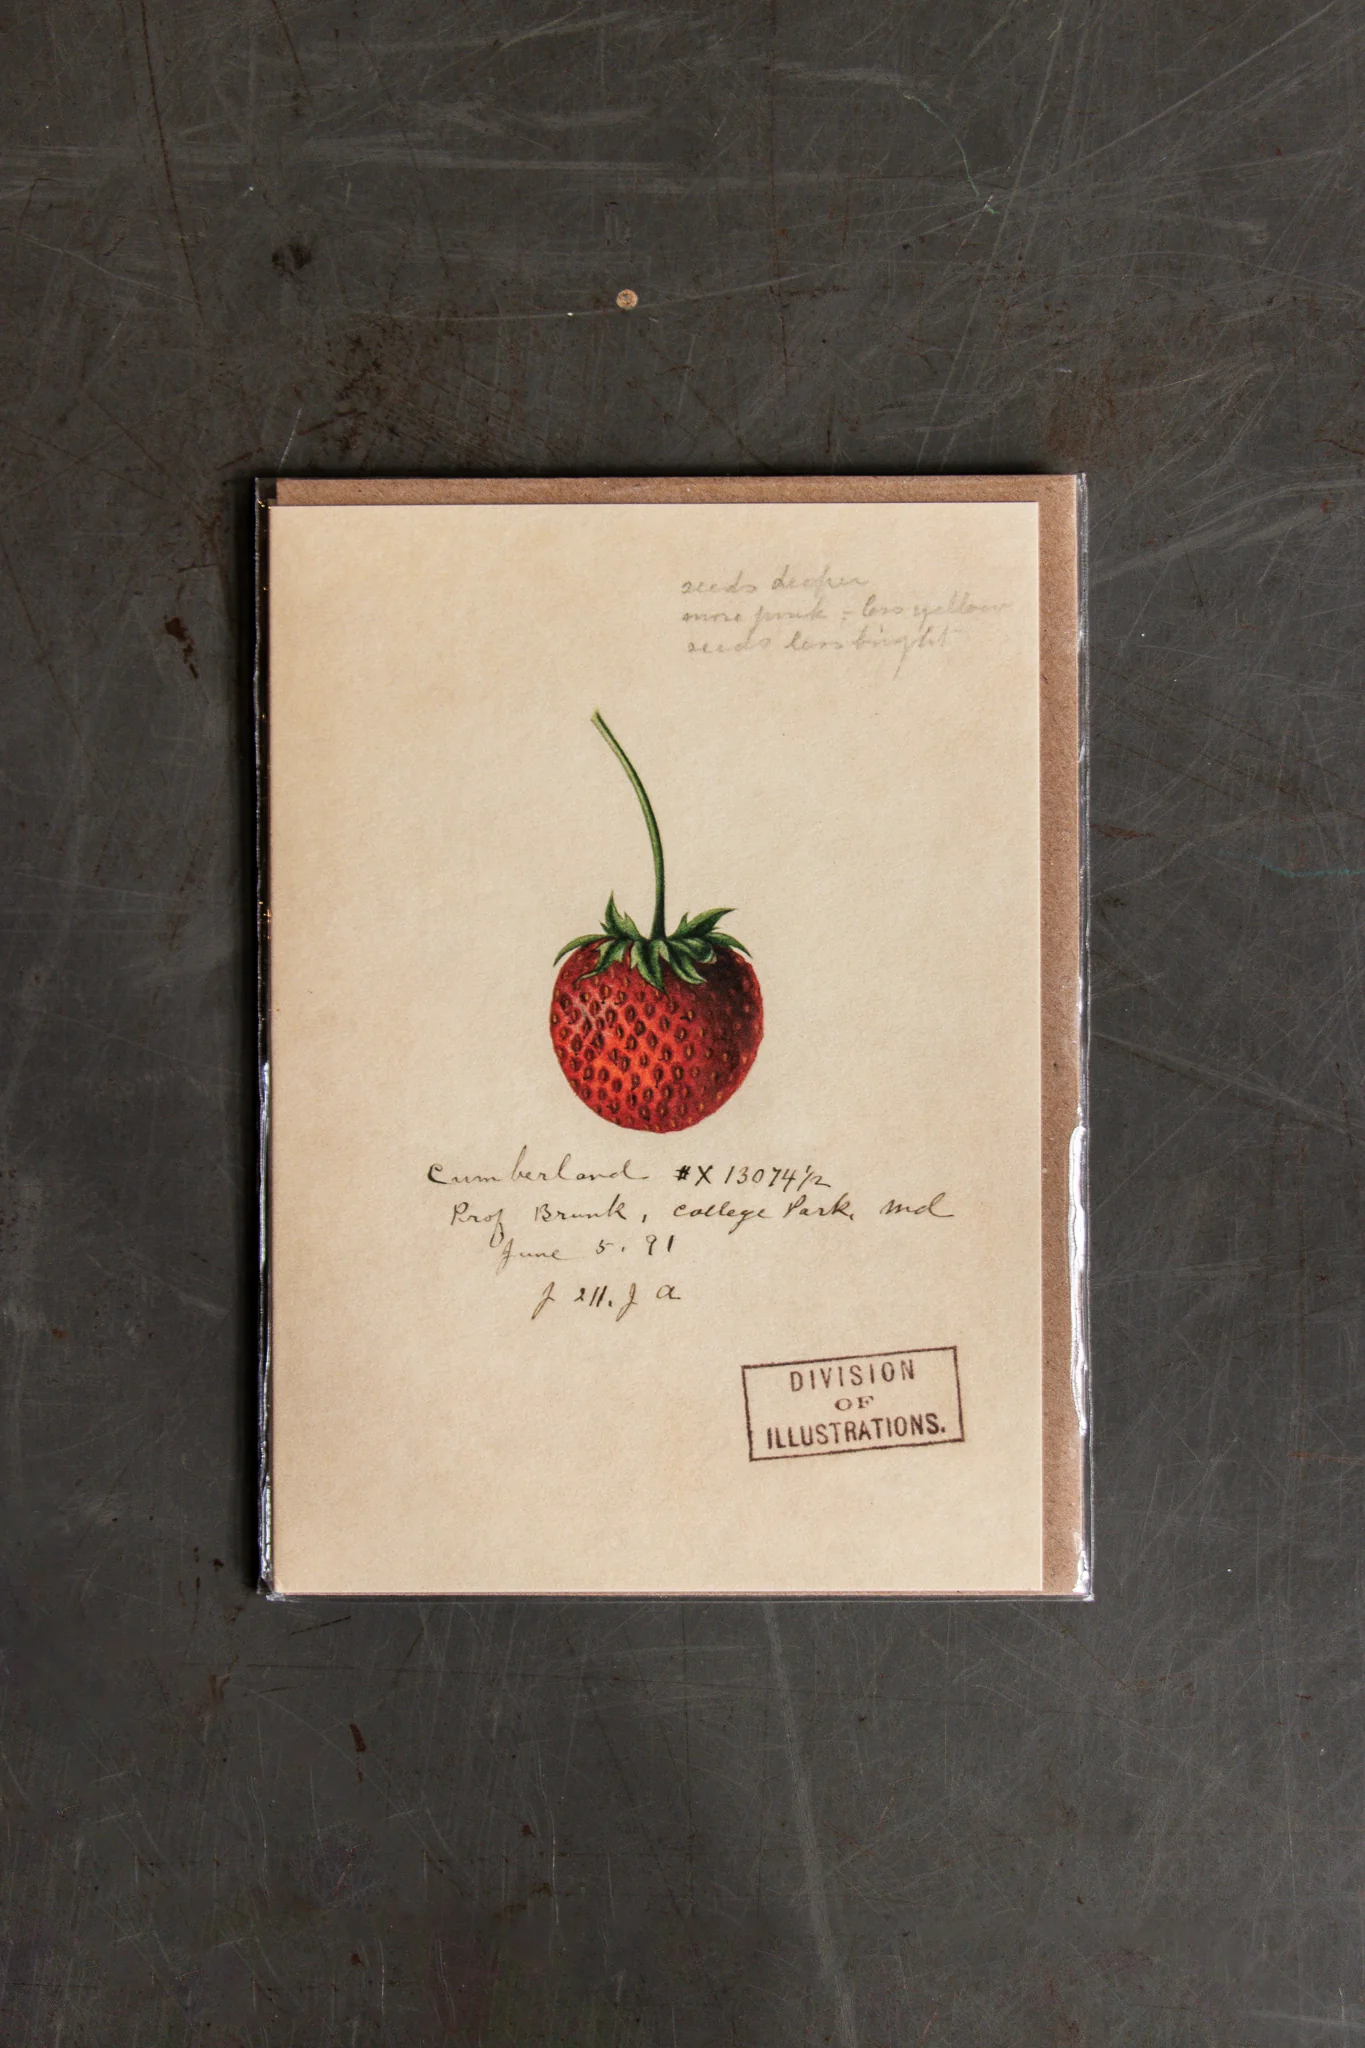 seeds deeper
more pink - less yellow
seeds less bright
Cumberland #X 13074½
Prof Brunk, College Park, Md
June 5. 91
DIVISION
OF
ILLUSTRATIONS.